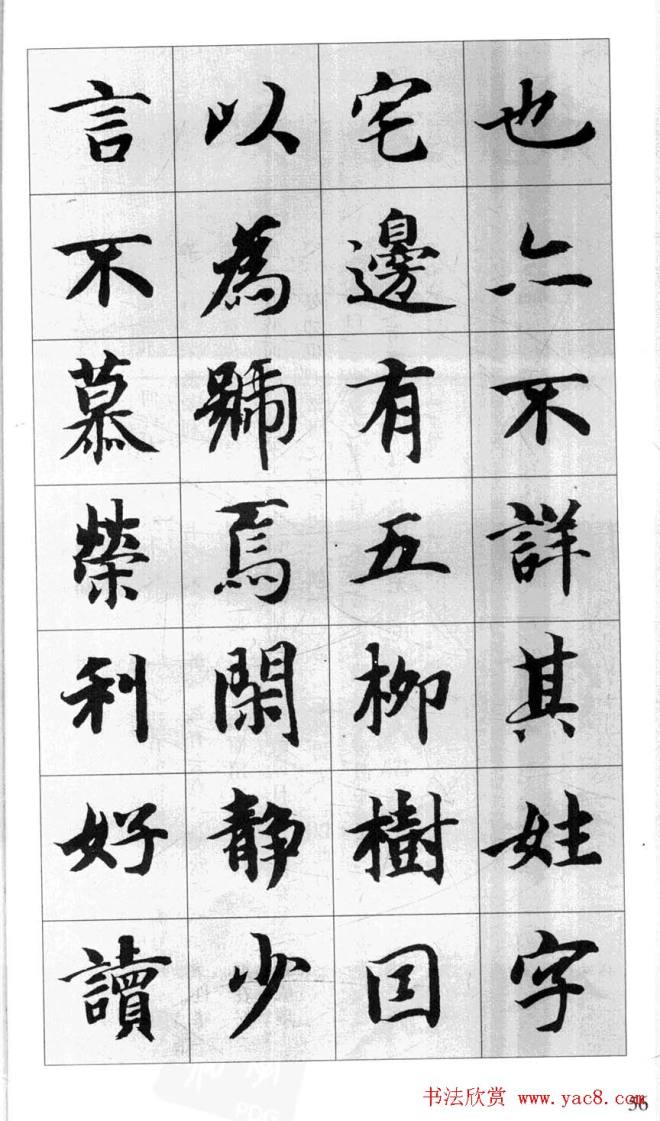 也亦不詳其姓字
宅邊有五柳樹因
以為號焉閑靜少
言不慕榮利好讀
书法欣赏 www.yac8.com
56